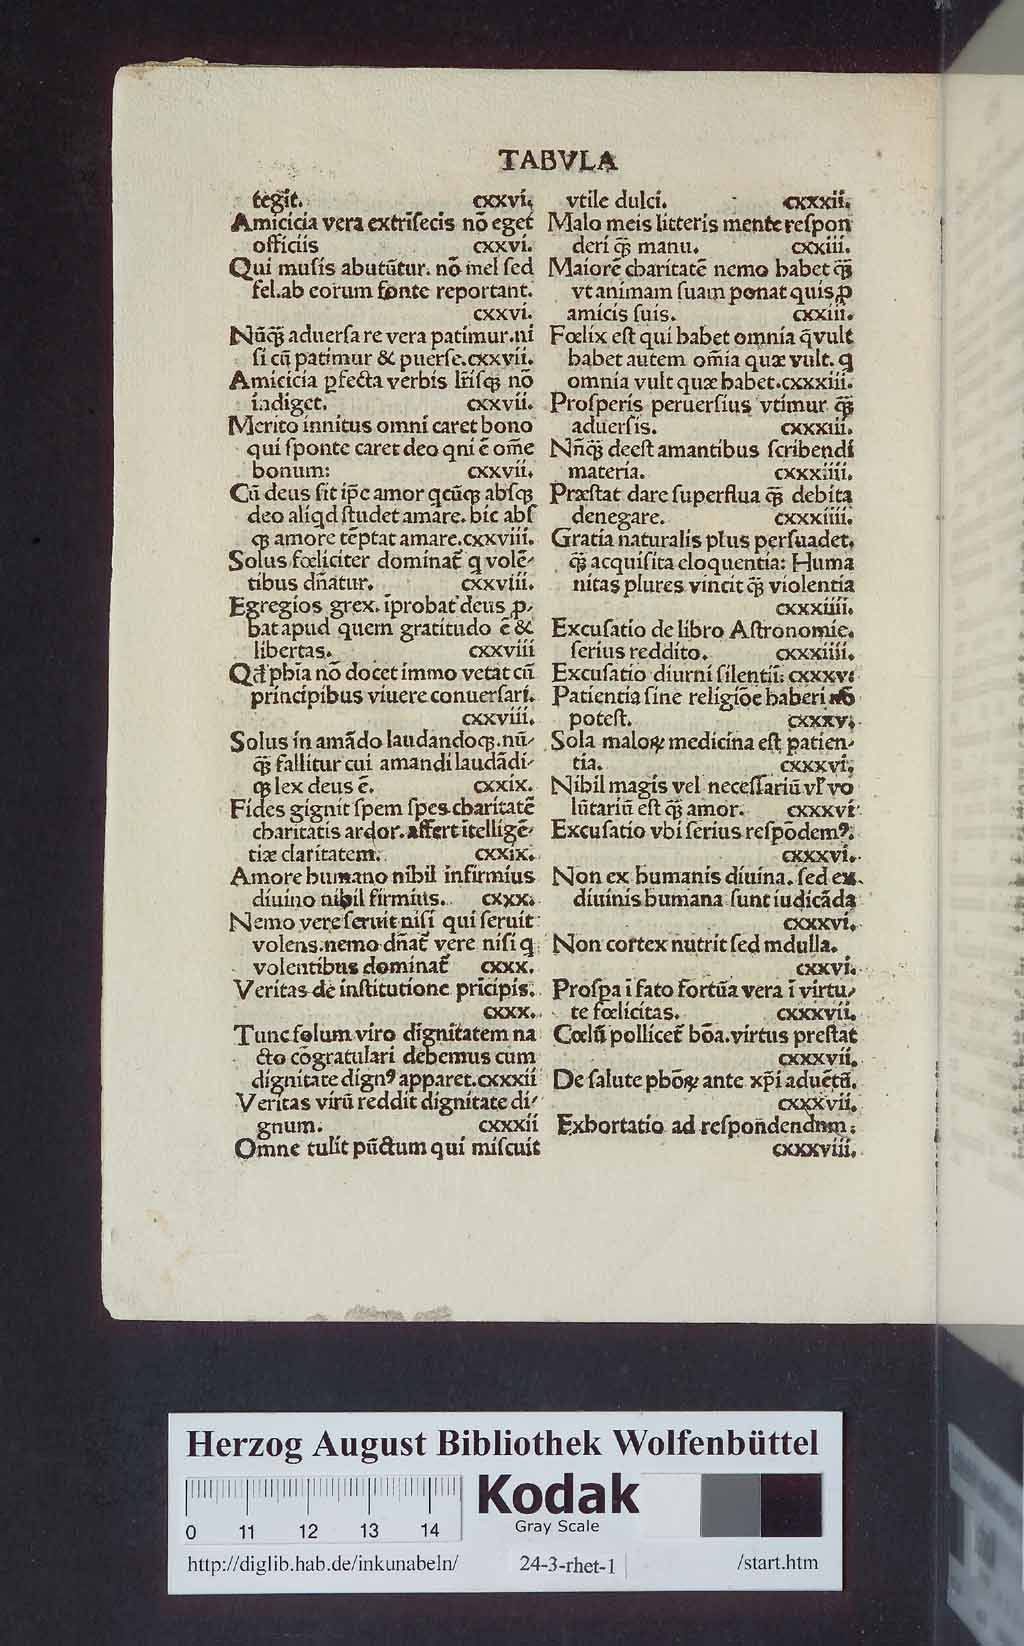 TABVLA
tegit. cxxvi.
Amicicia vera extrĩsecis nõ eget
officiis cxxvi.
Qui musis abutũtur. nõ mel sed
fel. ab eorum fonte reportant.
cxxvi.
Nũq̃ aduersa re vera patimur. ni
si cũ patimur & puerse. cxxvii.
Amicicia ꝑfecta verbis lr̃isqꝫ nõ
indiget. cxxvii.
Merito inuitus omni caret bono
qui sponte caret deo qui ẽ om̃e
bonum: cxxvii.
Cũ deus sit ip̃e amor qcũqꝫ absqꝫ
deo aliqd studet amare. hic abs
qꝫ amore tẽptat amare. cxxviii.
Solus fœliciter dominat̃ q volẽ⸗
tibus dñatur. cxxviii.
Egregios grex. ĩprobat deus ꝓ⸗
bat apud quem gratitudo ẽ &
libertas. cxxviii
Qđ phĩa nõ docet immo vetat cũ
principibus viuere conuersari.
cxxviii.
Solus in amãdo laudandoqꝫ. nũ⸗
q̃ fallitur cui amandi laudãdi⸗
qꝫ lex deus ẽ. cxxix.
Fides gignit spem spes charitatẽ
charitatis ardor. affert ĩtelligẽ⸗
tiæ claritatem. cxxix.
Amore humano nihil infirmius
diuino nihil firmius. cxxx.
Nemo vere seruit nisi qui seruit
volens. nemo dñat̃ vere nisi q
volentibus dominat̃ cxxx.
Veritas de institutione prĩcipis.
cxxx.
Tunc solum viro dignitatem na
cto cõgratulari debemus cum
dignitate dignꝰ apparet. cxxxii
Veritas virũ reddit dignitate di⸗
gnum. cxxxii
Omne tulit pũctum qui miscuit
vtile dulci. cxxxii.
Malo meis litteris mente respon
deri q̃ manu. cxxiii.
Maiorẽ charitatẽ nemo habet q̃
vt animam suam ponat quis ꝓ
amicis suis. cxxiii.
Fœlix est qui habet omnia q̃ vult
habet autem om̃ia quæ vult. q
omnia vult quæ habet. cxxxiii.
Prosperis peruersius vtimur q̃
aduersis. cxxxiii.
Nñq̃ deest amantibus scribendi
materia. cxxxiiii.
Præstat dare superflua q̃ debita
denegare. cxxxiiii.
Gratia naturalis plus persuadet.
q̃ acquisita eloquentia: Huma
nitas plures vincit q̃ violentia
cxxxiiii.
Excusatio de libro Astronomie.
serius reddito. cxxxiiii.
Excusatio diurni silentii: cxxxv:
Patientia sine religiõe haberi nõ
potest. cxxxv.
Sola maloꝝ medicina est patien⸗
tia. cxxxvi.
Nihil magis vel necessariũ vl̃ vo
lũtariũ est q̃ amor. cxxxvi
Excusatio vbi serius respõdemꝰ.
cxxxvi.
Non ex humanis diuina. sed ex
diuinis humana sunt iudicãda
cxxxvi.
Non cortex nutrit sed mdulla.
cxxvi.
Prospa ĩ fato fortũa vera ĩ virtu⸗
te fœlicitas. cxxxvii.
Cœlũ pollicet̃ bõa. virtus prestat
cxxxvii.
De salute phõꝝ ante xp̃i aduẽtũ.
cxxxvii.
Exhortatio ad respoñdendnm:
cxxxviii.
Herzog August Bibliothek Wolfenbüttel
0 11 12 13 14
Kodak
Gray Scale
http://diglib.hab.de/inkunabeln/ 24-3-rhet-1 /start.htm